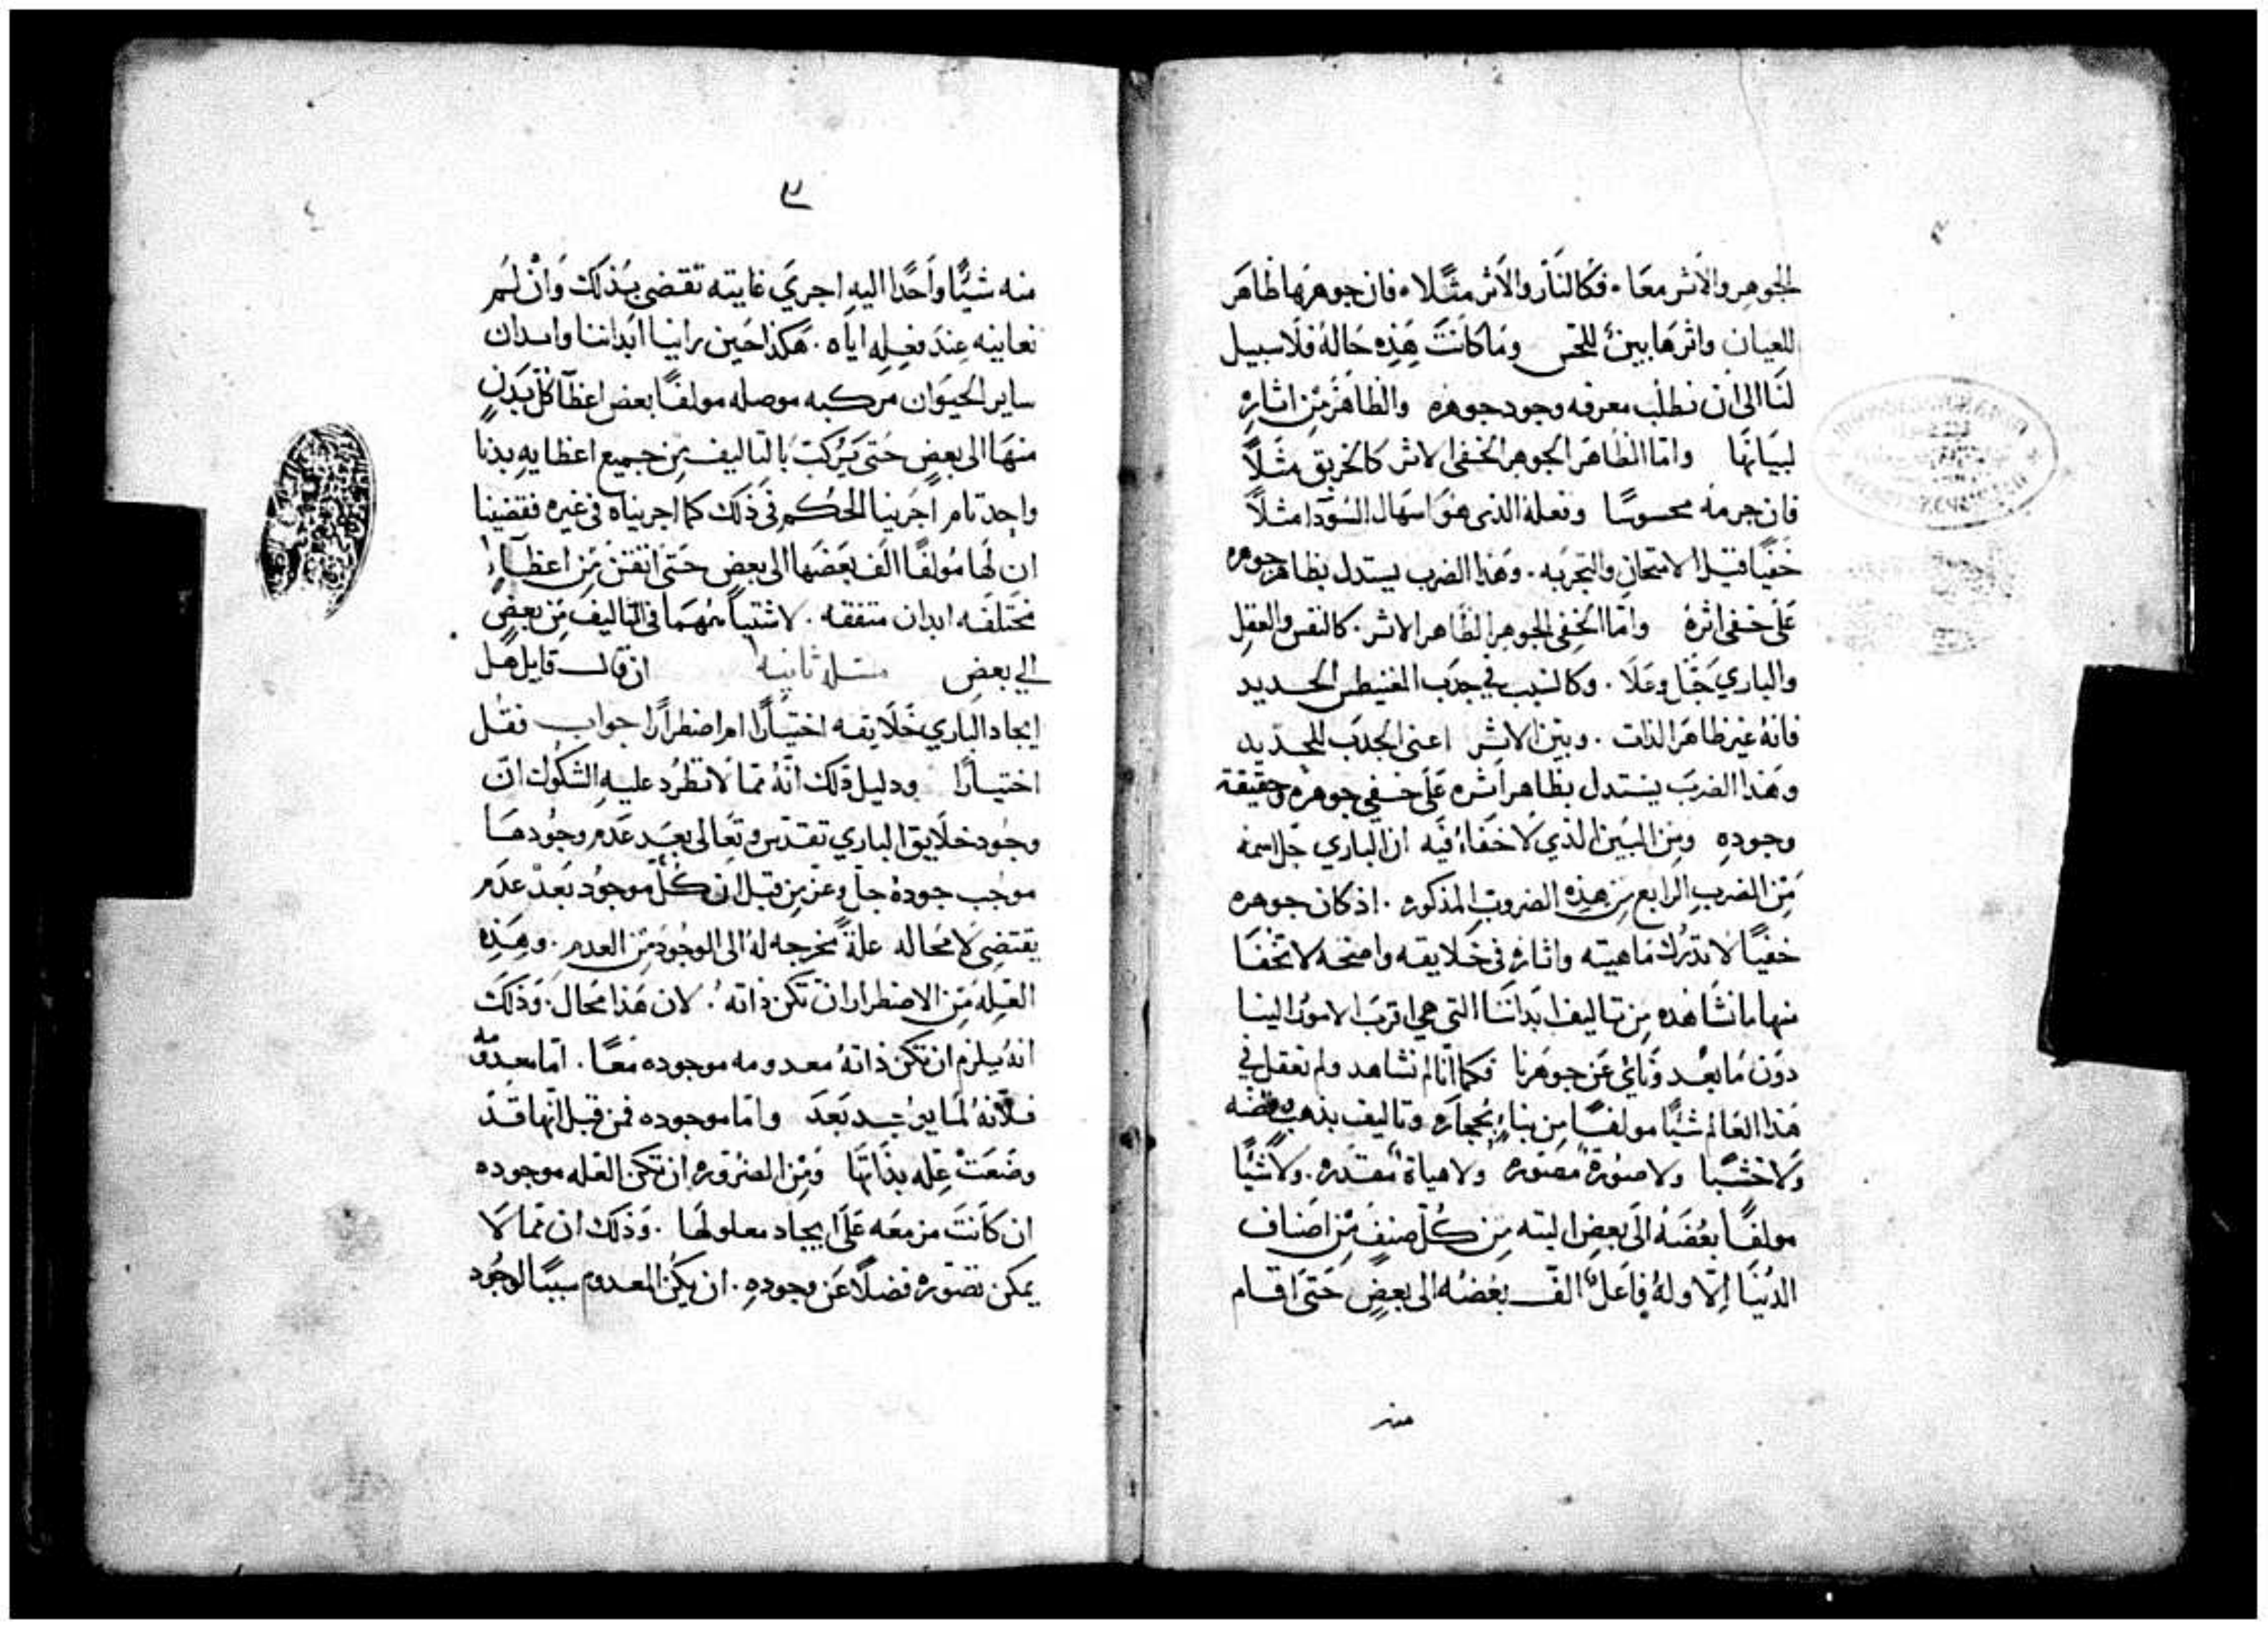 الجوهر والاثر معا. فكالنار والاثر مثلا. فان جوهرها ظاهر
للعيان واثرها بين للحس وما كانت هذه حاله فلا سبيل
لنا الى ان نطلب معرفه وجود جوهره والظاهر من اثاره
لبيانها واما الظاهر الجوهر الخفي الاثر كالخربق مثلاً
فان جرمه محسوسًا وفعله الذى هو اسهال السودا مثلاً
خفيا قبل الامتحان والتجربه. وهذا الضرب يستدل بظاهر جوهره
على خفى اثره واما الخفى الجوهر الظاهر الاثر. كالنفس والعقل
والباري جل وعلا. وكالسبب في جذب المغنيطس الحديد
فانه غير ظاهر الذات. وبين الاثر اعنى الجذب للحديد
وهذا الضرب يستدل بظاهر اثره على خفي جوهره وحقيقة
وجوده ومن البين الذي لا خفاء فيه ان الباري جل اسمه
من الضرب الرابع من هذه الضروب المذكوره. اذ كان جوهره
خفيًا لا تدرك ماهيته واثاره فى خلايقه واضحه لا تخفا
منها ما نشاهده من تاليف ابداننا التي هي اقرب الامور الينا
دون ما بعد ونائ عن جوهرنا فكما انا لم نشاهد ولم نعقل في
هذا العالم شيًا مولفًا من بناء بحجاره وتاليف بذهب وفضه
ولا خشبا ولا صورة مصوره ولا هياة مقدره. ولا شيًا
مولفًا بعضه الى بعض البته من كل صنف من اصناف
الدنيا الا وله فاعل الف بعضه الى بعض حتى اقام
منه
٣
منه شيًا واحدًا اليه اجري غايته نقضى بذلك وان لم
نعاينه عند فعله اياه. هكذا حين راينا ابداننا وابدان
ساير الحيوان مركبه موصله مولفًا بعض اعظا كل بدن
منها الى بعض حتى يتركب بالتاليف من جميع اعظايه بدنا
واحد تام اجرينا الحكم فى ذلك كما اجريناه فى غيره فقضينا
ان لها مولفًا الف بعضها الى بعض حتى اتقن من اعظاء
مختلفه ابدان متفقه. لاشتباههما فى التاليف من بعض
الي بعض مسله ثانيه ان قال قايل هل
ايجاد الباري خلايقه اختيارًا ام اضطرارًا جواب فقل
اختيارا ودليل ذلك انه مما لا تطرد عليه الشكوك ان
وجود خلايق الباري تقدس وتعالى بعد عدم وجودها
موجب جوده جل وعز من قبل ان كل موجود بعد عدم
يقتضى لا محاله علة مخرجه له الى الوجود من العدم. وهذه
العله من الاضطرار ان تكن ذاته. لان هذا محال. وذلك
انه يلزم ان تكن ذاته معدومه موجوده معًا. اما معدومه
فلانه لما يوجد بعد واما موجوده فمن قبل انها قد
وضعت عله بذاتها ومن الضروره ان تكن العله موجوده
ان كانت مزمعه على ايجاد معلولها. وذلك ان مما لا
يمكن تصوره فضلاً عن وجوده. ان يكن المعدوم سببًا لوجود